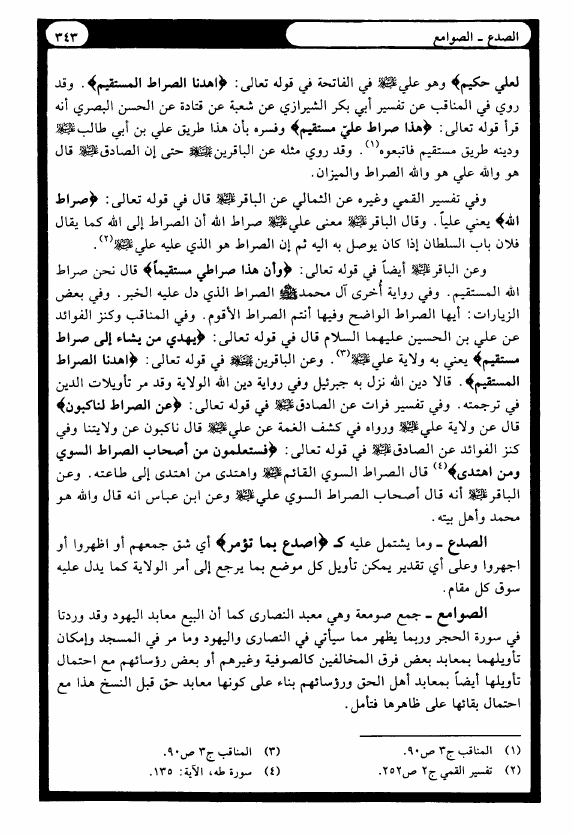 الصدع ـ الصوامع
٣٤٣
لعلي حكيم﴾ وهو علي ﷺ في الفاتحة في قوله تعالى: ﴿اهدنا الصراط المستقيم﴾. وقد
روي في المناقب عن تفسير أبي بكر الشيرازي عن شعبة عن قتادة عن الحسن البصري أنه
قرأ قوله تعالى: ﴿هذا صراط عليّ مستقيم﴾ وفسره بأن هذا طريق علي بن أبي طالب
ودينه طريق مستقيم فاتبعوه(١). وقد روي مثله عن الباقرين حتى إن الصادق قال
هو والله علي هو والله الصراط والميزان.
وفي تفسير القمي وغيره عن الثمالي عن الباقر قال في قوله تعالى: ﴿صراط
الله﴾ يعني علياً. وقال الباقر معنى علي صراط الله أن الصراط إلى الله كما يقال
فلان باب السلطان إذا كان يوصل به اليه ثم إن الصراط هو الذي عليه علي(٢).
وعن الباقر أيضاً في قوله تعالى: ﴿وأن هذا صراطي مستقيماً﴾ قال نحن صراط
الله المستقيم. وفي رواية أُخرى آل محمد ﷺ الصراط الذي دل عليه الخبر. وفي بعض
الزيارات: أيها الصراط الواضح وفيها أنتم الصراط الأقوم. وفي المناقب وكنز الفوائد
عن علي بن الحسين عليهما السلام قال في قوله تعالى: ﴿يهدي من يشاء إلى صراط
مستقيم﴾ يعني به ولاية علي(٣). وعن الباقرين في قوله تعالى: ﴿اهدنا الصراط
المستقيم﴾. قالا دين الله نزل به جبرئيل وفي رواية دين الله الولاية وقد مر تأويلات الدين
في ترجمته. وفي تفسير فرات عن الصادق في قوله تعالى: ﴿عن الصراط لناكبون﴾
قال عن ولاية علي ورواه في كشف الغمة عن علي قال ناكبون عن ولايتنا وفي
كنز الفوائد عن الصادق في قوله تعالى: ﴿فستعلمون من أصحاب الصراط السوي
ومن اهتدى﴾(٤) قال الصراط السوي القائم واهتدى من اهتدى إلى طاعته. وعن
الباقر أنه قال أصحاب الصراط السوي علي وعن ابن عباس انه قال والله هو
محمد وأهل بيته.
الصدع ـ وما يشتمل عليه كـ ﴿اصدع بما تؤمر﴾ أي شق جمعهم أو اظهروا أو
اجهروا وعلى أي تقدير يمكن تأويل كل موضع بما يرجع إلى أمر الولاية كما يدل عليه
سوق كل مقام.
الصوامع ـ جمع صومعة وهي معبد النصارى كما أن البيع معابد اليهود وقد وردتا
في سورة الحجر وربما يظهر مما سيأتي في النصارى واليهود وما مر في المسجد وإمكان
تأويلهما بمعابد بعض فرق المخالفين كالصوفية وغيرهم أو بعض رؤسائهم مع احتمال
تأويلها أيضاً بمعابد أهل الحق ورؤسائهم بناء على كونها معابد حق قبل النسخ هذا مع
احتمال بقائها على ظاهرها فتأمل.
(١) المناقب ج٣ ص٩٠.
(٢) تفسير القمي ج٢ ص٢٥٢.
(٣) المناقب ج٣ ص٩٠.
(٤) سورة طه، الآية: ١٣٥.